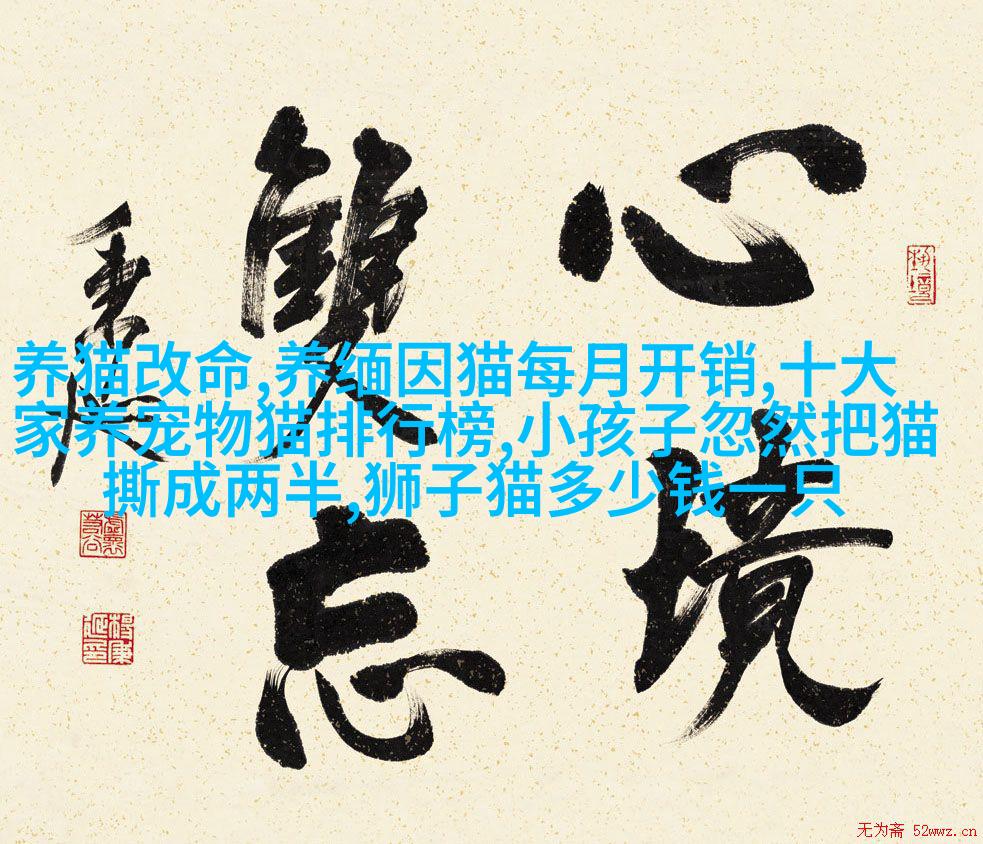 心境
雙忘
養猫改命,养缅因猫每月开销,十大
家养宠物猫排行榜,小孩子忽然把猫
撕成两半,狮子猫多少钱一只
无为斋 52wwz.cn